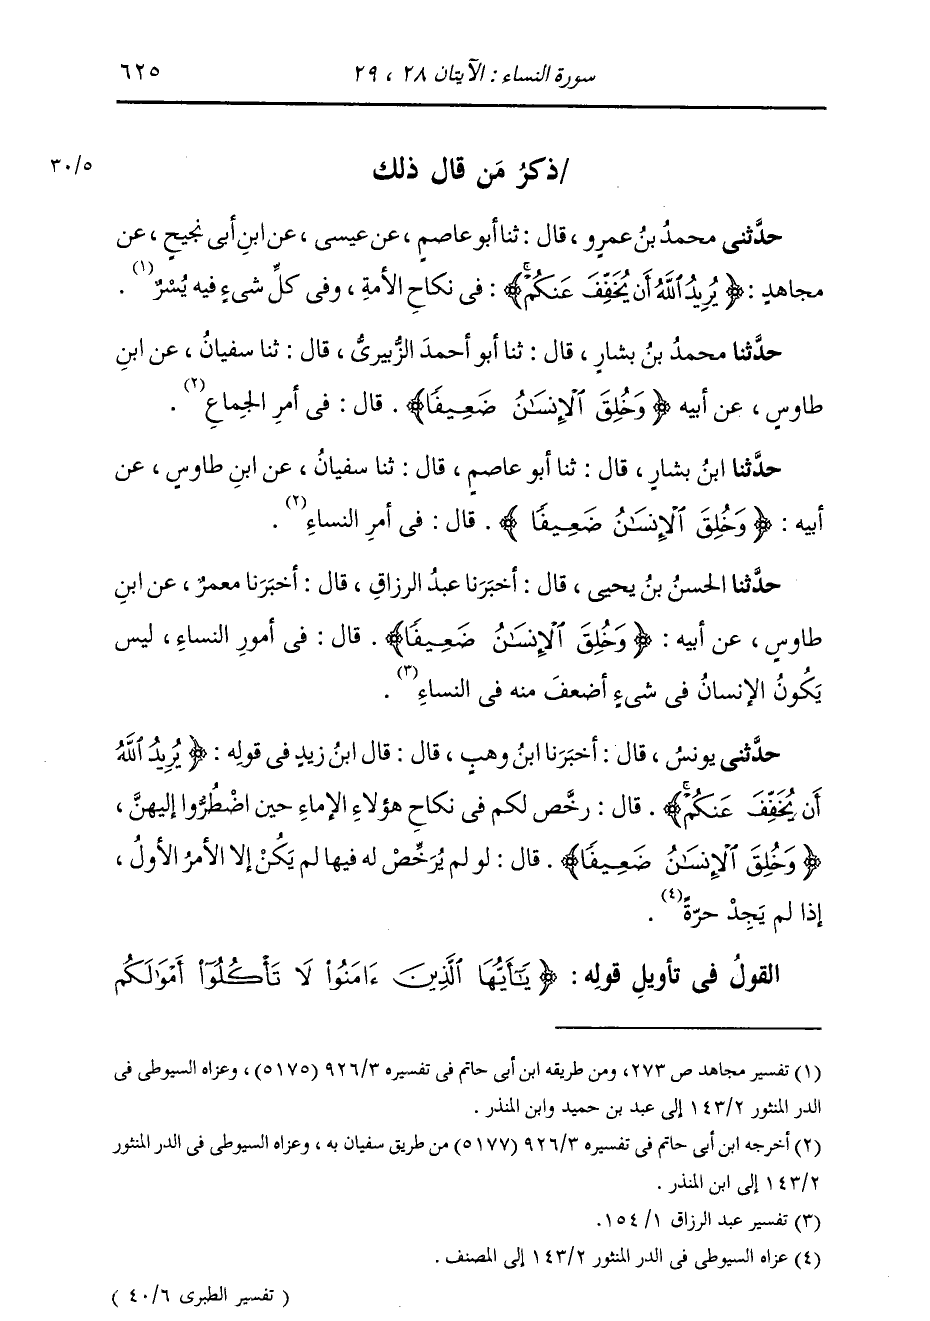 سورة النساء : الآيتان ٢٨ ، ٢٩ ٦٢٥
/ذكرُ مَن قال ذلك ٣٠/٥
حدَّثنى محمدُ بنُ عمرٍو ، قال : ثنا أبو عاصمٍ ، عن عيسى ، عن ابنِ أبى نجيحٍ ، عن
مجاهدٍ : ﴿ يُرِيدُ ٱللَّهُ أَن يُخَفِّفَ عَنكُمْۚ ﴾ : فى نكاحِ الأمةِ ، وفى كلِّ شىءٍ فيه يُسْرٌ(١) .
حدَّثنا محمدُ بنُ بشارٍ ، قال : ثنا أبو أحمدَ الزُّبيرىُّ ، قال : ثنا سفيانُ ، عن ابنِ
طاوسٍ ، عن أبيه ﴿ وَخُلِقَ ٱلْإِنسَـٰنُ ضَعِيفًا ﴾ . قال : فى أمرِ الجِماعِ(٢) .
حدَّثنا ابنُ بشارٍ ، قال : ثنا أبو عاصمٍ ، قال : ثنا سفيانُ ، عن ابنِ طاوسٍ ، عن
أبيه : ﴿ وَخُلِقَ ٱلْإِنسَـٰنُ ضَعِيفًا ﴾ . قال : فى أمرِ النساءِ(٢) .
حدَّثنا الحسنُ بنُ يحيى ، قال : أخبَرَنا عبدُ الرزاقِ ، قال : أخبَرَنا معمرٌ ، عن ابنِ
طاوسٍ ، عن أبيه : ﴿ وَخُلِقَ ٱلْإِنسَـٰنُ ضَعِيفًا ﴾ . قال : فى أمورِ النساءِ ، ليس
يَكُونُ الإنسانُ فى شىءٍ أضعفَ منه فى النساءِ(٣) .
حدَّثنى يونسُ ، قال : أخبَرَنا ابنُ وهبٍ ، قال : قال ابنُ زيدٍ فى قولِه : ﴿ يُرِيدُ ٱللَّهُ
أَن يُخَفِّفَ عَنكُمْۚ ﴾ . قال : رخَّص لكم فى نكاحِ هؤلاءِ الإماءِ حين اضْطُرُّوا إليهنَّ ،
﴿ وَخُلِقَ ٱلْإِنسَـٰنُ ضَعِيفًا ﴾ . قال : لو لم يُرَخِّصْ له فيها لم يَكُنْ إلا الأمرُ الأولُ ،
إذا لم يَجِدْ حرّةً(٤) .
القولُ فى تأويلِ قولِه : ﴿ يَـٰٓأَيُّهَا ٱلَّذِينَ ءَامَنُوا۟ لَا تَأْكُلُوٓا۟ أَمْوَٰلَكُم
(١) تفسير مجاهد ص ٢٧٣، ومن طريقه ابن أبى حاتم فى تفسيره ٩٢٦/٣ (٥١٧٥) ، وعزاه السيوطى فى
الدر المنثور ١٤٣/٢ إلى عبد بن حميد وابن المنذر .
(٢) أخرجه ابن أبى حاتم فى تفسيره ٩٢٦/٣ (٥١٧٧) من طريق سفيان به ، وعزاه السيوطى فى الدر المنثور
١٤٣/٢ إلى ابن المنذر .
(٣) تفسير عبد الرزاق ١/ ١٥٤.
(٤) عزاه السيوطى فى الدر المنثور ١٤٣/٢ إلى المصنف .
( تفسير الطبرى ٤٠/٦ )